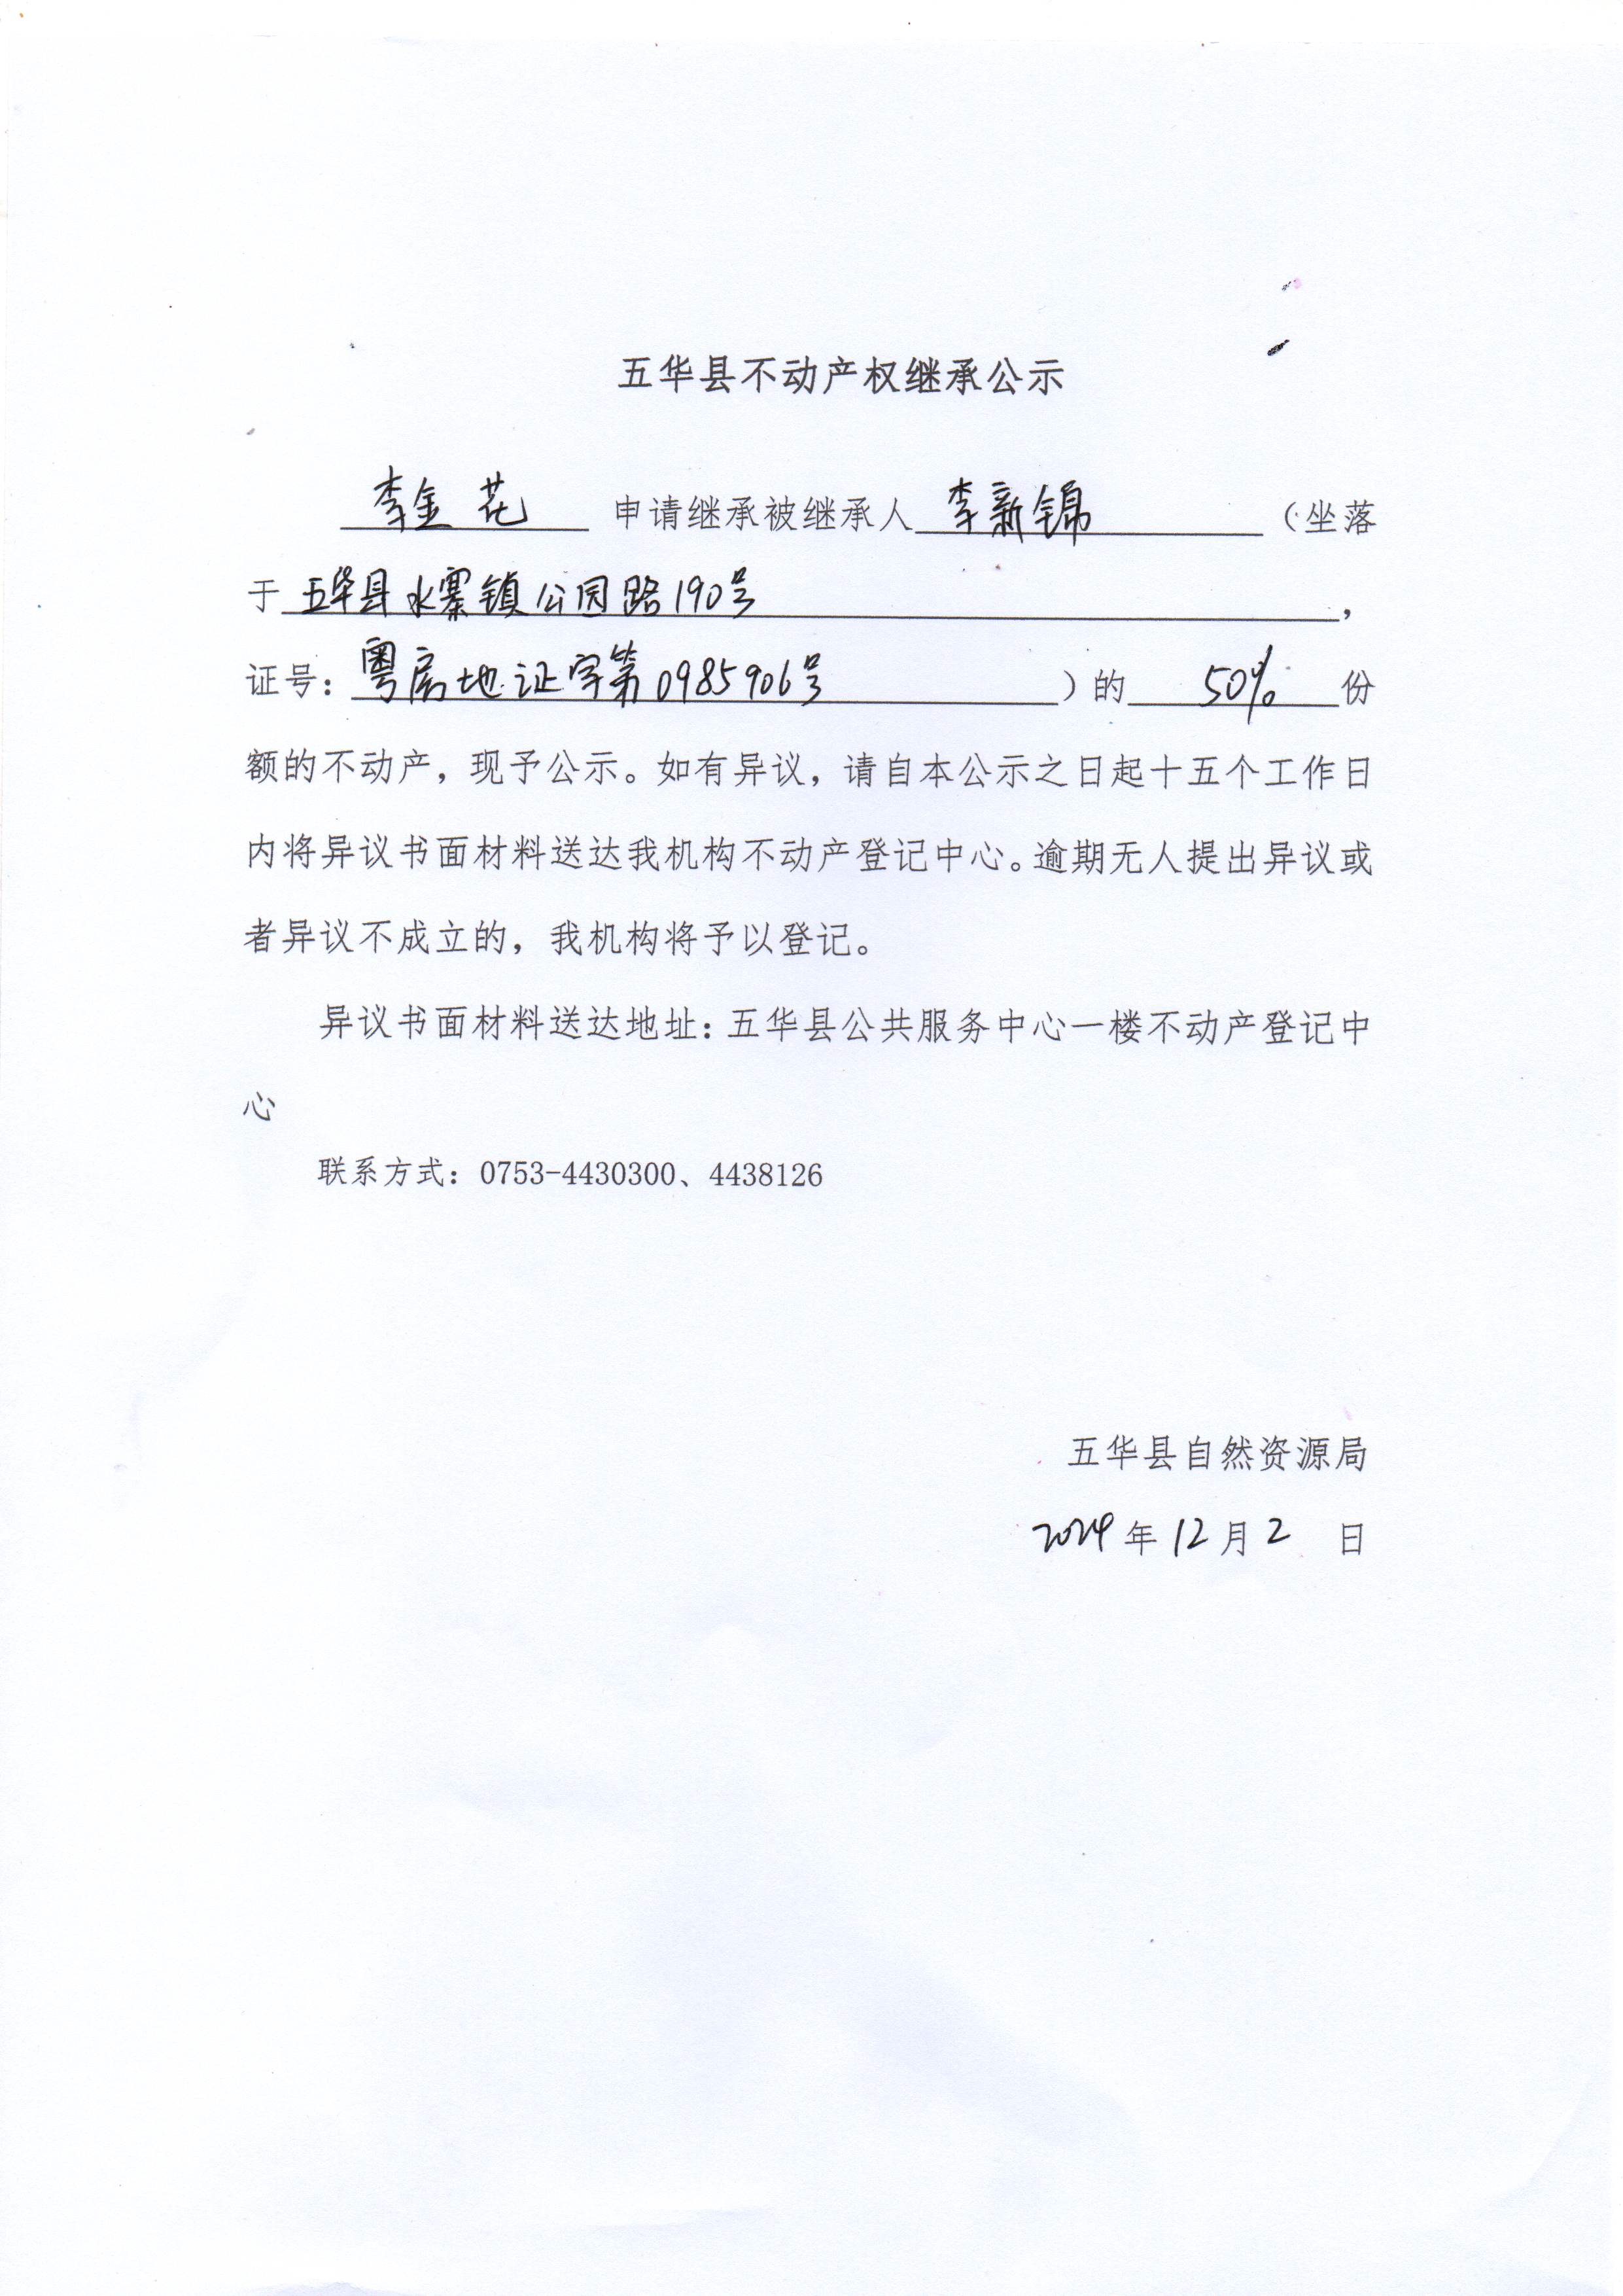 五华县不动产权继承公示
李金花 申请继承被继承人 李新锦 （坐落
于 五华县水寨镇公园路190号 ，
证号：粤房地证字第0985906号 ）的 50% 份
额的不动产，现予公示。如有异议，请自本公示之日起十五个工作日
内将异议书面材料送达我机构不动产登记中心。逾期无人提出异议或
者异议不成立的，我机构将予以登记。
异议书面材料送达地址：五华县公共服务中心一楼不动产登记中
心
联系方式：0753-4430300、4438126
五华县自然资源局
2024年12月2 日